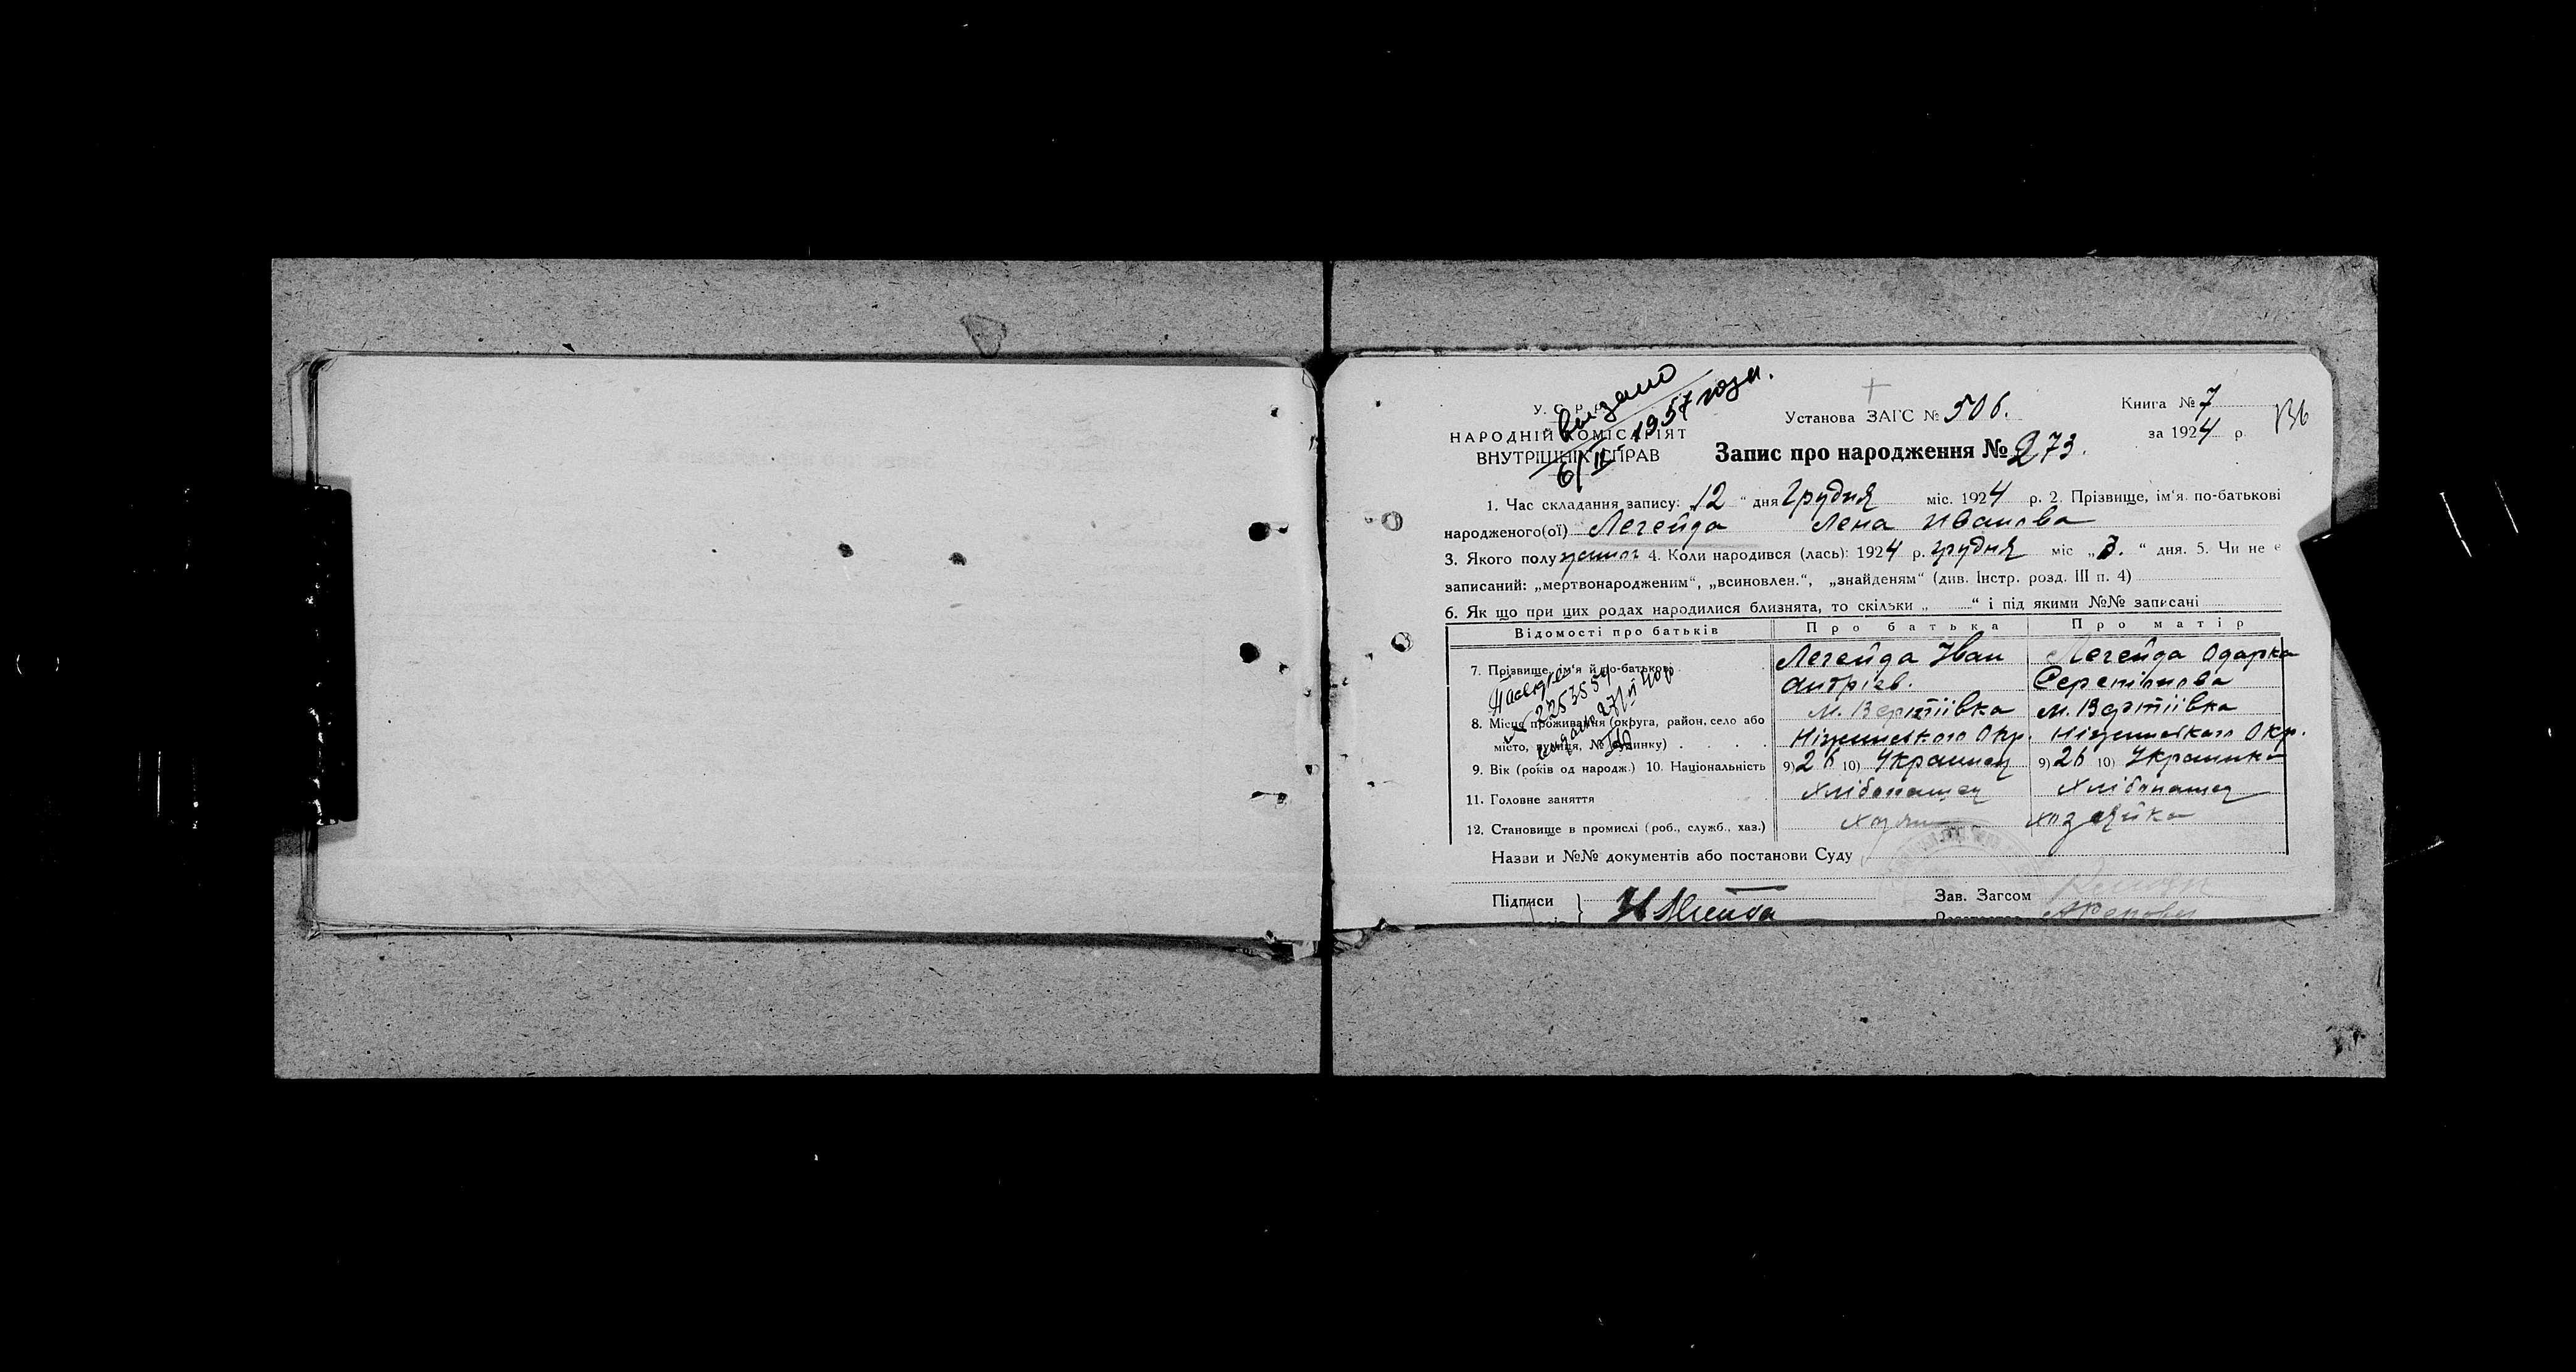 видано
6/II 1957 года.
У. С. Р. Р.
НАРОДНІЙ КОМІСАРІЯТ
ВНУТРІШНІХ СПРАВ
Установа ЗАГС № 506.
Книга № 7
за 1924 р.
136
Запис про народження № 273.
1. Час складання запису: 12 " дня Грудня міс. 1924 р. 2. Прізвище, ім'я по-батькові
народженого(ої) Легейда Лена Иванова
3. Якого полу 4. Коли народився (лась): 1924 р. грудня міс „3. " дня. 5. Чи не є
записаний: „мертвонародженим", „всиновлен.", „знайденям" (див. Інстр. розд. III п. 4)
6. Як що при цих родах народилися близнята, то скільки „ " і під якими №№ записані
Відомості про батьків Про батька Про матір
7. Прізвище, ім'я й по-батькові Легейда Іван Легейда Одарка
Андріев.
8. Місце проживання (округа, район, село або М. Вертіївка М. Вертіївка
місто, вулиця, № будинку) Ніженського Окр. Ніженського Окр.
9. Вік (років од народж.) 10. Національність 9) 26 10) Українец 9) 26 10) Українка
11. Головне заняття Хлібопашец Хлібопашец
12. Становище в промислі (роб., служб., хаз.) Хозяин хозяйка
Назви и №№ документів або постанови Суду
Підписи
Зав. Загсом